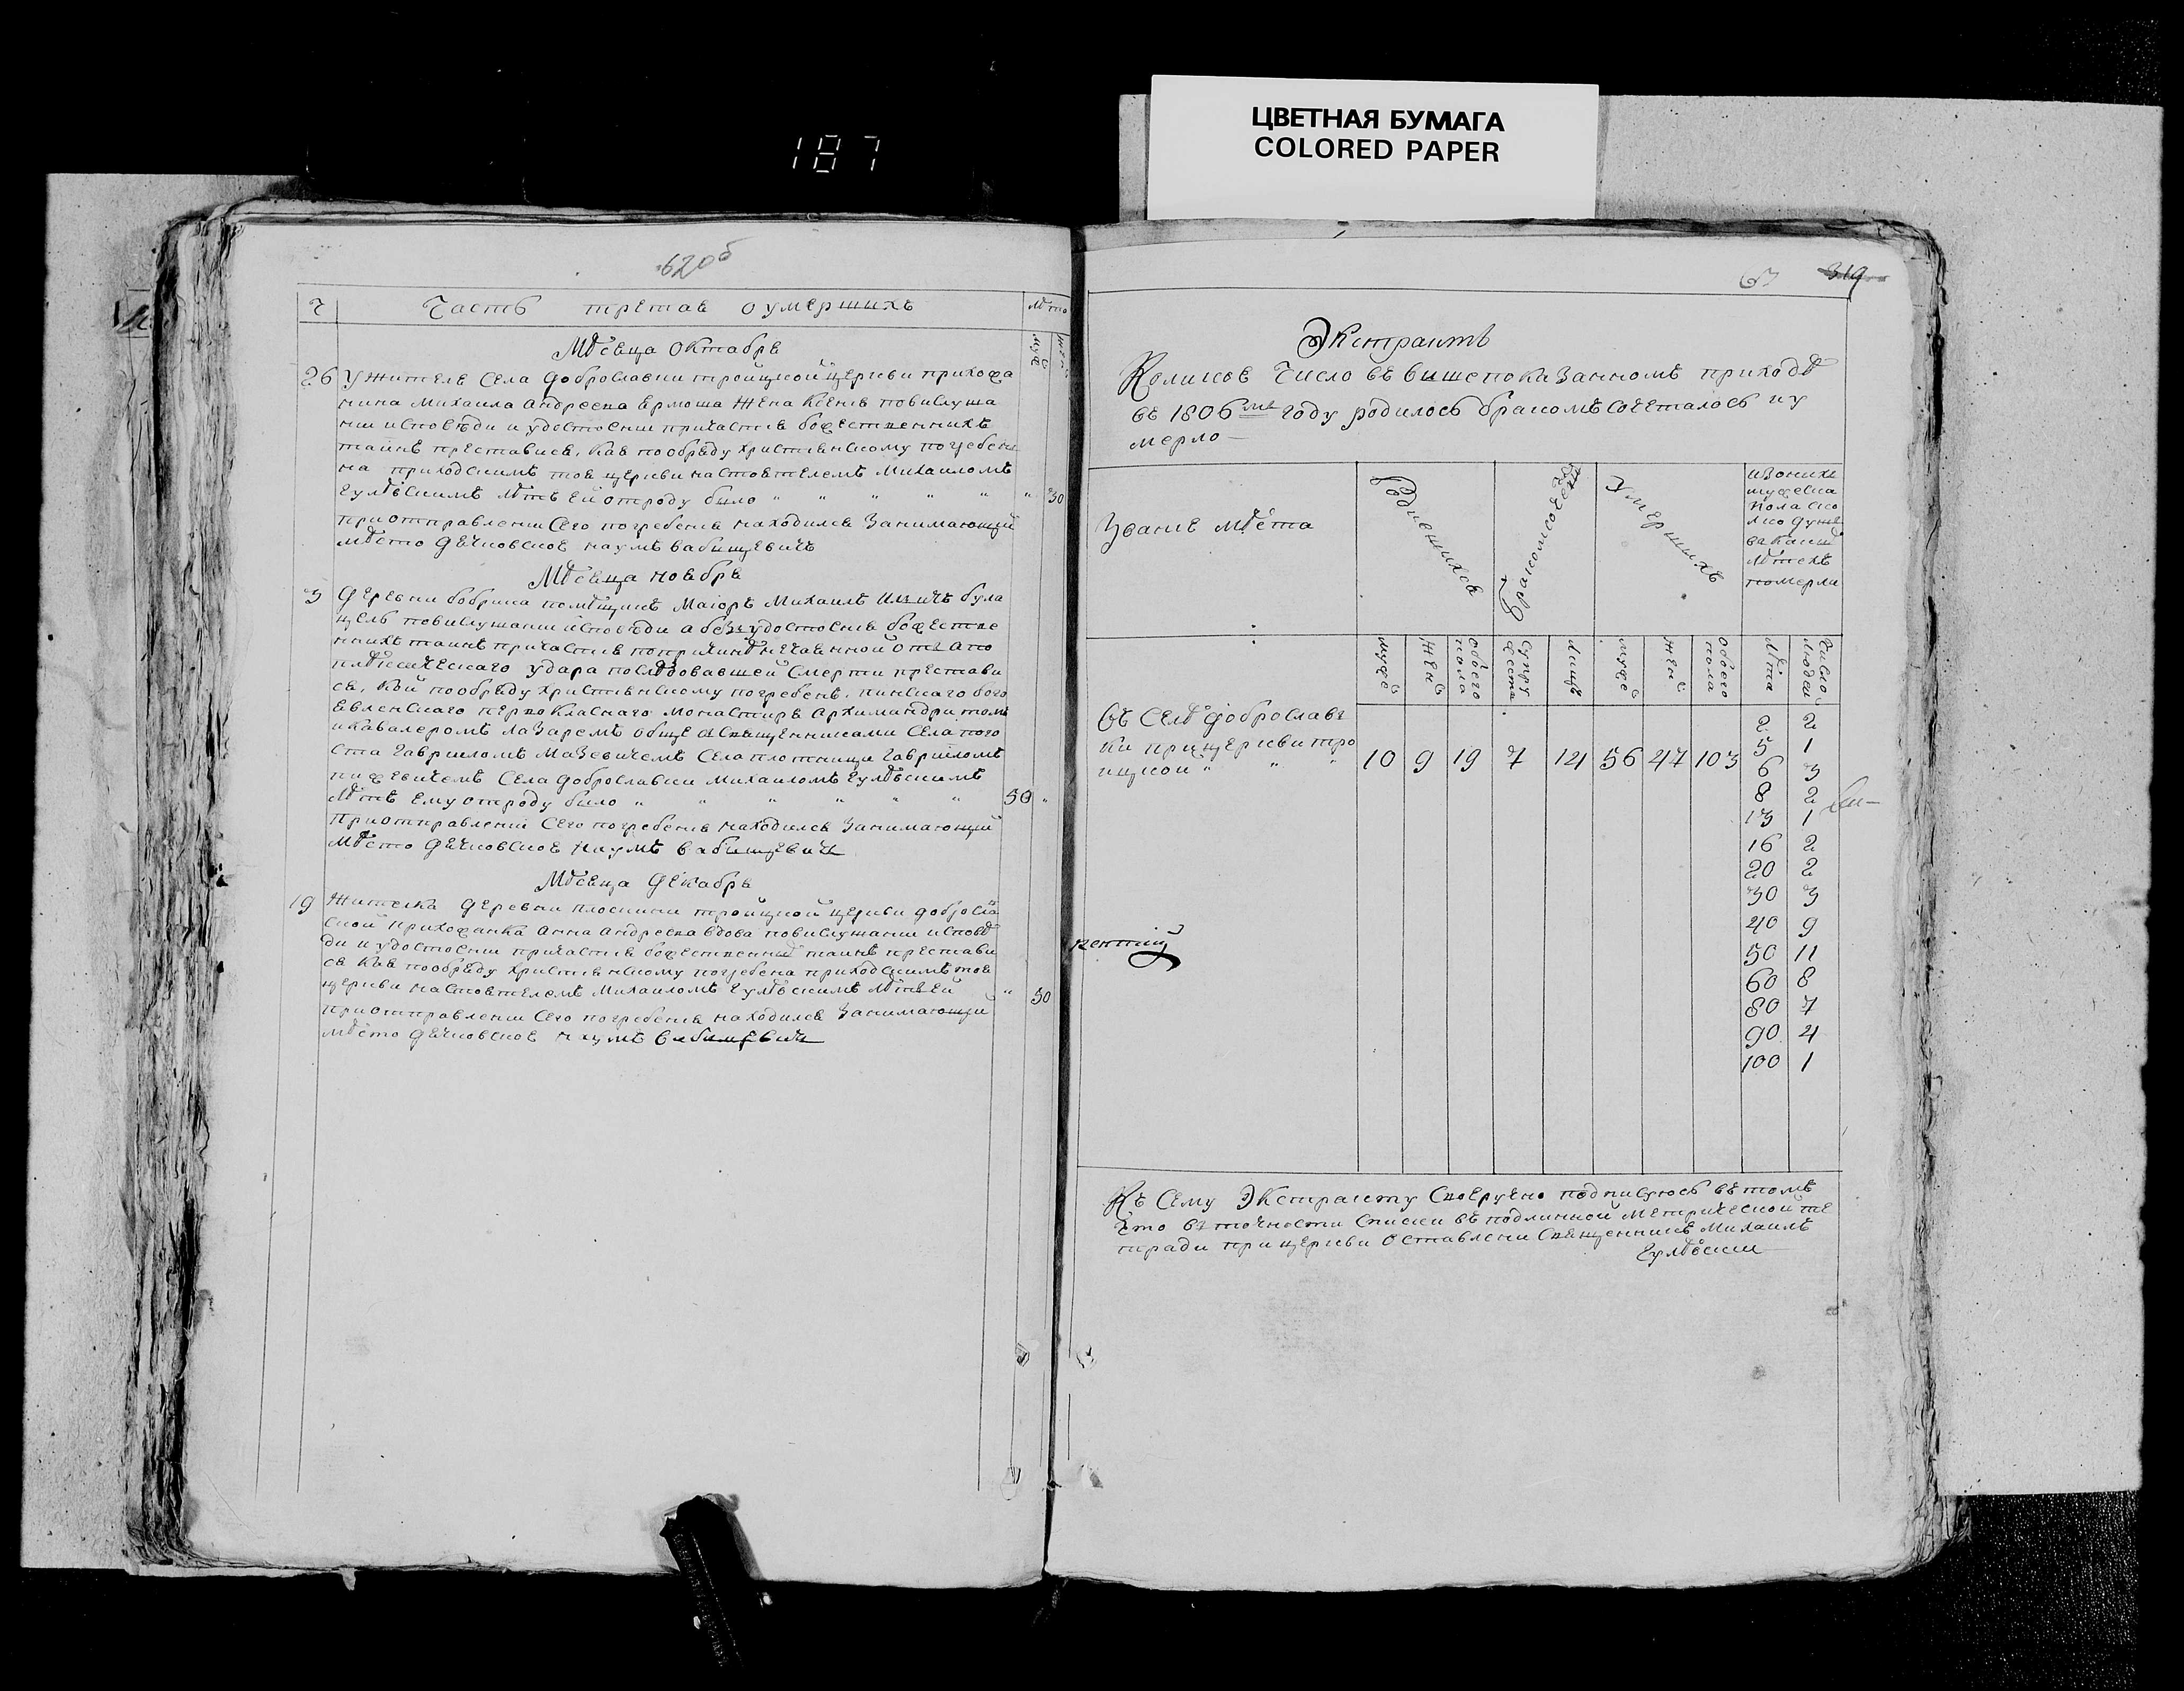 187
ЦВЕТНАЯ БУМАГА
COLORED PAPER
62об
Часть третая о умершихъ
Лѣто
муж
жен
Мѣсяца Октабря
26 У жителя Села Доброславки троицкой церкви прихожа
нина Михаила Андреева Ермоша жена Ксенія повислуша
нии исповѣди и удостоении причастія божественнихъ
таинъ преставися, кая пообряду христіанскому погребен
на приходскимъ тоя церкви настоятелемъ Михаиломъ
Гулѣскимъ лѣтъ ей отроду било " " " " " " 30
приотправлении Сего погребенія находился Занимающии
мѣсто дячковское Наумъ Бабицевичъ
Мѣсяца Ноября
3 Деревни бобрика помѣщикъ Маіоръ Михаилъ була
цель повислушании исповѣди а безъ удостоенія божестве
ннихъ таинъ причастія попричинѣ нечаянной отъ Апо
плѣксическаго удара послѣдовавшей Смерти престави
ся, кой пообряду христіанскому погребенъ, пинскаго бого
явленскаго первокласнаго монастиря Архимандритомъ
икавалеромъ Лазаремъ обще Священниками Села пого
ста Гавриломъ Мазевичемъ Села плотници Гавриломъ
Села Доброславки Михаиломъ Гулѣскимъ
Лѣтъ Ему отроду било " " " " " " 50 "
Приотправлении Сего погребенія находился Занимающии
мѣсто дячковское Наумъ Бабицевичъ
Мѣсяца Декабря
19 Жителка деревни плоскини троицкой церкви доброслав
ской прихожанка Анна Андреева вдова повислушании исповѣ
ди и удостоении причастія божественнихъ таинъ престави
ся кая пообряду христіанскому погребена приходскимъ тоя
церкви настоятелемъ Михаиломъ Гулѣскимъ лѣтъ ей " 50
приотправлении Сего погребенія находился Занимающии
мѣсто дячковское Наумъ Бабицевичъ
63 319
Экстрактъ
Коликое Число въ вишепоказанномъ приходѣ
въ 1806мъ году родилось бракомъ сочеталось и у
мерло
Званіе мѣста
Родившихся
Бракомсочет
Умершихъ
изонихъ
мужеска
пола ско
лко душъ
вакаких
лѣтехъ
померли
мужеск
жен
обоего пола
Супружества
Лицъ
мужеск
жен
обоего пола
Лѣта
Число людей
въ Селѣ Доброслав
ки прицеркви тро
ицкой " " " 10 9 19 7 14 56 47 103
2 2
5 1
6 3
8 2
13 1
16 2
20 2
30 3
40 9
50 11
60 8
80 7
90 4
100 1
Къ Сему Экстракту Своеручно подписуюсь въ томъ
Что въ точности Списки въ подлинной метрической те
тради прицеркви Оставлени Священникъ Михаилъ
Гулѣский